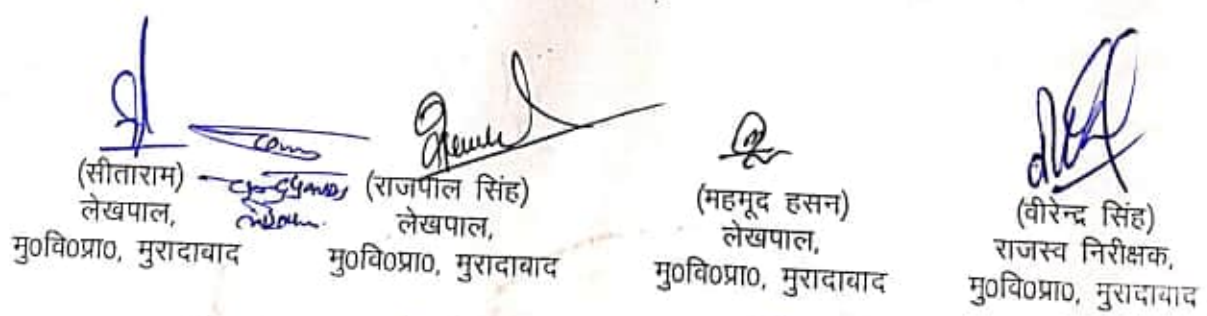 (सीताराम)
लेखपाल,
मु०वि०प्रा०, मुरादाबाद
(राजपाल सिंह)
लेखपाल,
मु०वि०प्रा०, मुरादाबाद
(महमूद हसन)
लेखपाल,
मु०वि०प्रा०, मुरादाबाद
(वीरेन्द्र सिंह)
राजस्व निरीक्षक,
मु०वि०प्रा०, मुरादाबाद